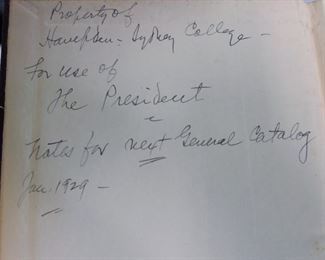 Property of
Hampden-Sydney College -
For use of
The President
Notes for next General Catalog
Jan. 1929 -